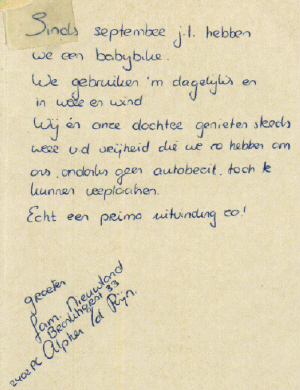 Sinds september j.l. hebben
we een babybike.
We gebruiken 'm dagelijks en
in weer en wind
Wij én onze dochter genieten steeds
weer v.d vrijheid die we zo hebben om
ons, ondanks geen autobezit, toch te
kunnen verplaatsen.
Echt een prima uitvinding zo!
groeten
fam. Nieuwland
33
2402 PC Alphen a/d Rijn.